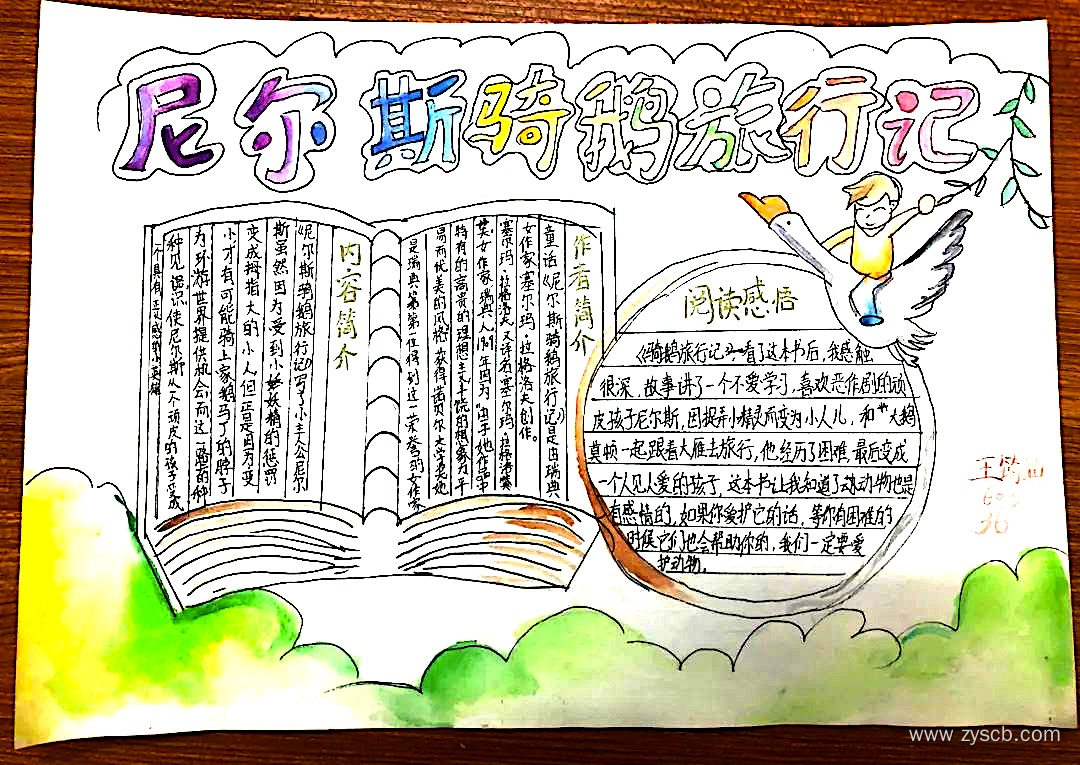 尼尔斯骑鹅旅行记
作者简介
童话《尼尔斯骑鹅旅行记》是由瑞典
女作家塞尔玛·拉格洛夫创作。
塞尔玛·拉格洛夫 又译名塞尔玛·拉格洛芙
女作家 瑞典人 1909年因为“由于她作品中
特有的高贵的理想主义
高而优美的风格”获得诺贝尔文学奖 她
是瑞典第一位得到这一荣誉的女作家
内容简介
《尼尔斯骑鹅旅行记》写了小主人公尼尔
斯虽然因为受到小妖精的惩罚
变成拇指大的小人但一后是因为变
小才有可能骑上家鹅马丁的脖子
为环游世界提供机会而这一路的种
种见识使尼尔斯从一个顽皮的孩子变成
一个具有
阅读感悟
《骑鹅旅行记》看了这本书后，我感触
很深，故事讲了一个不爱学习，喜欢恶作剧的顽
皮孩子尼尔斯，因捉弄小精灵而变为小人儿，和大鹅
莫顿一起跟着大雁去旅行，他经历了困难，最后变成
一个人见人爱的孩子，这本书让我知道了动物也是
有感情的，如果你爱护它的话，等你有困难的
时候它们也会帮助你的，我们一定要爱
护动物。
www.zyscb.com